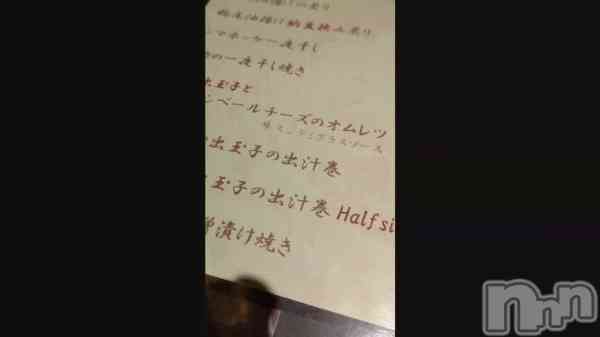 栃尾油揚げ納豆挟み炙り
シマホッケ一夜干し
の一夜干し焼き
出玉子と
ンベールチーズのオムレツ
出玉子の出汁巻
玉子の出汁巻 Half si
漬け焼き
nnn